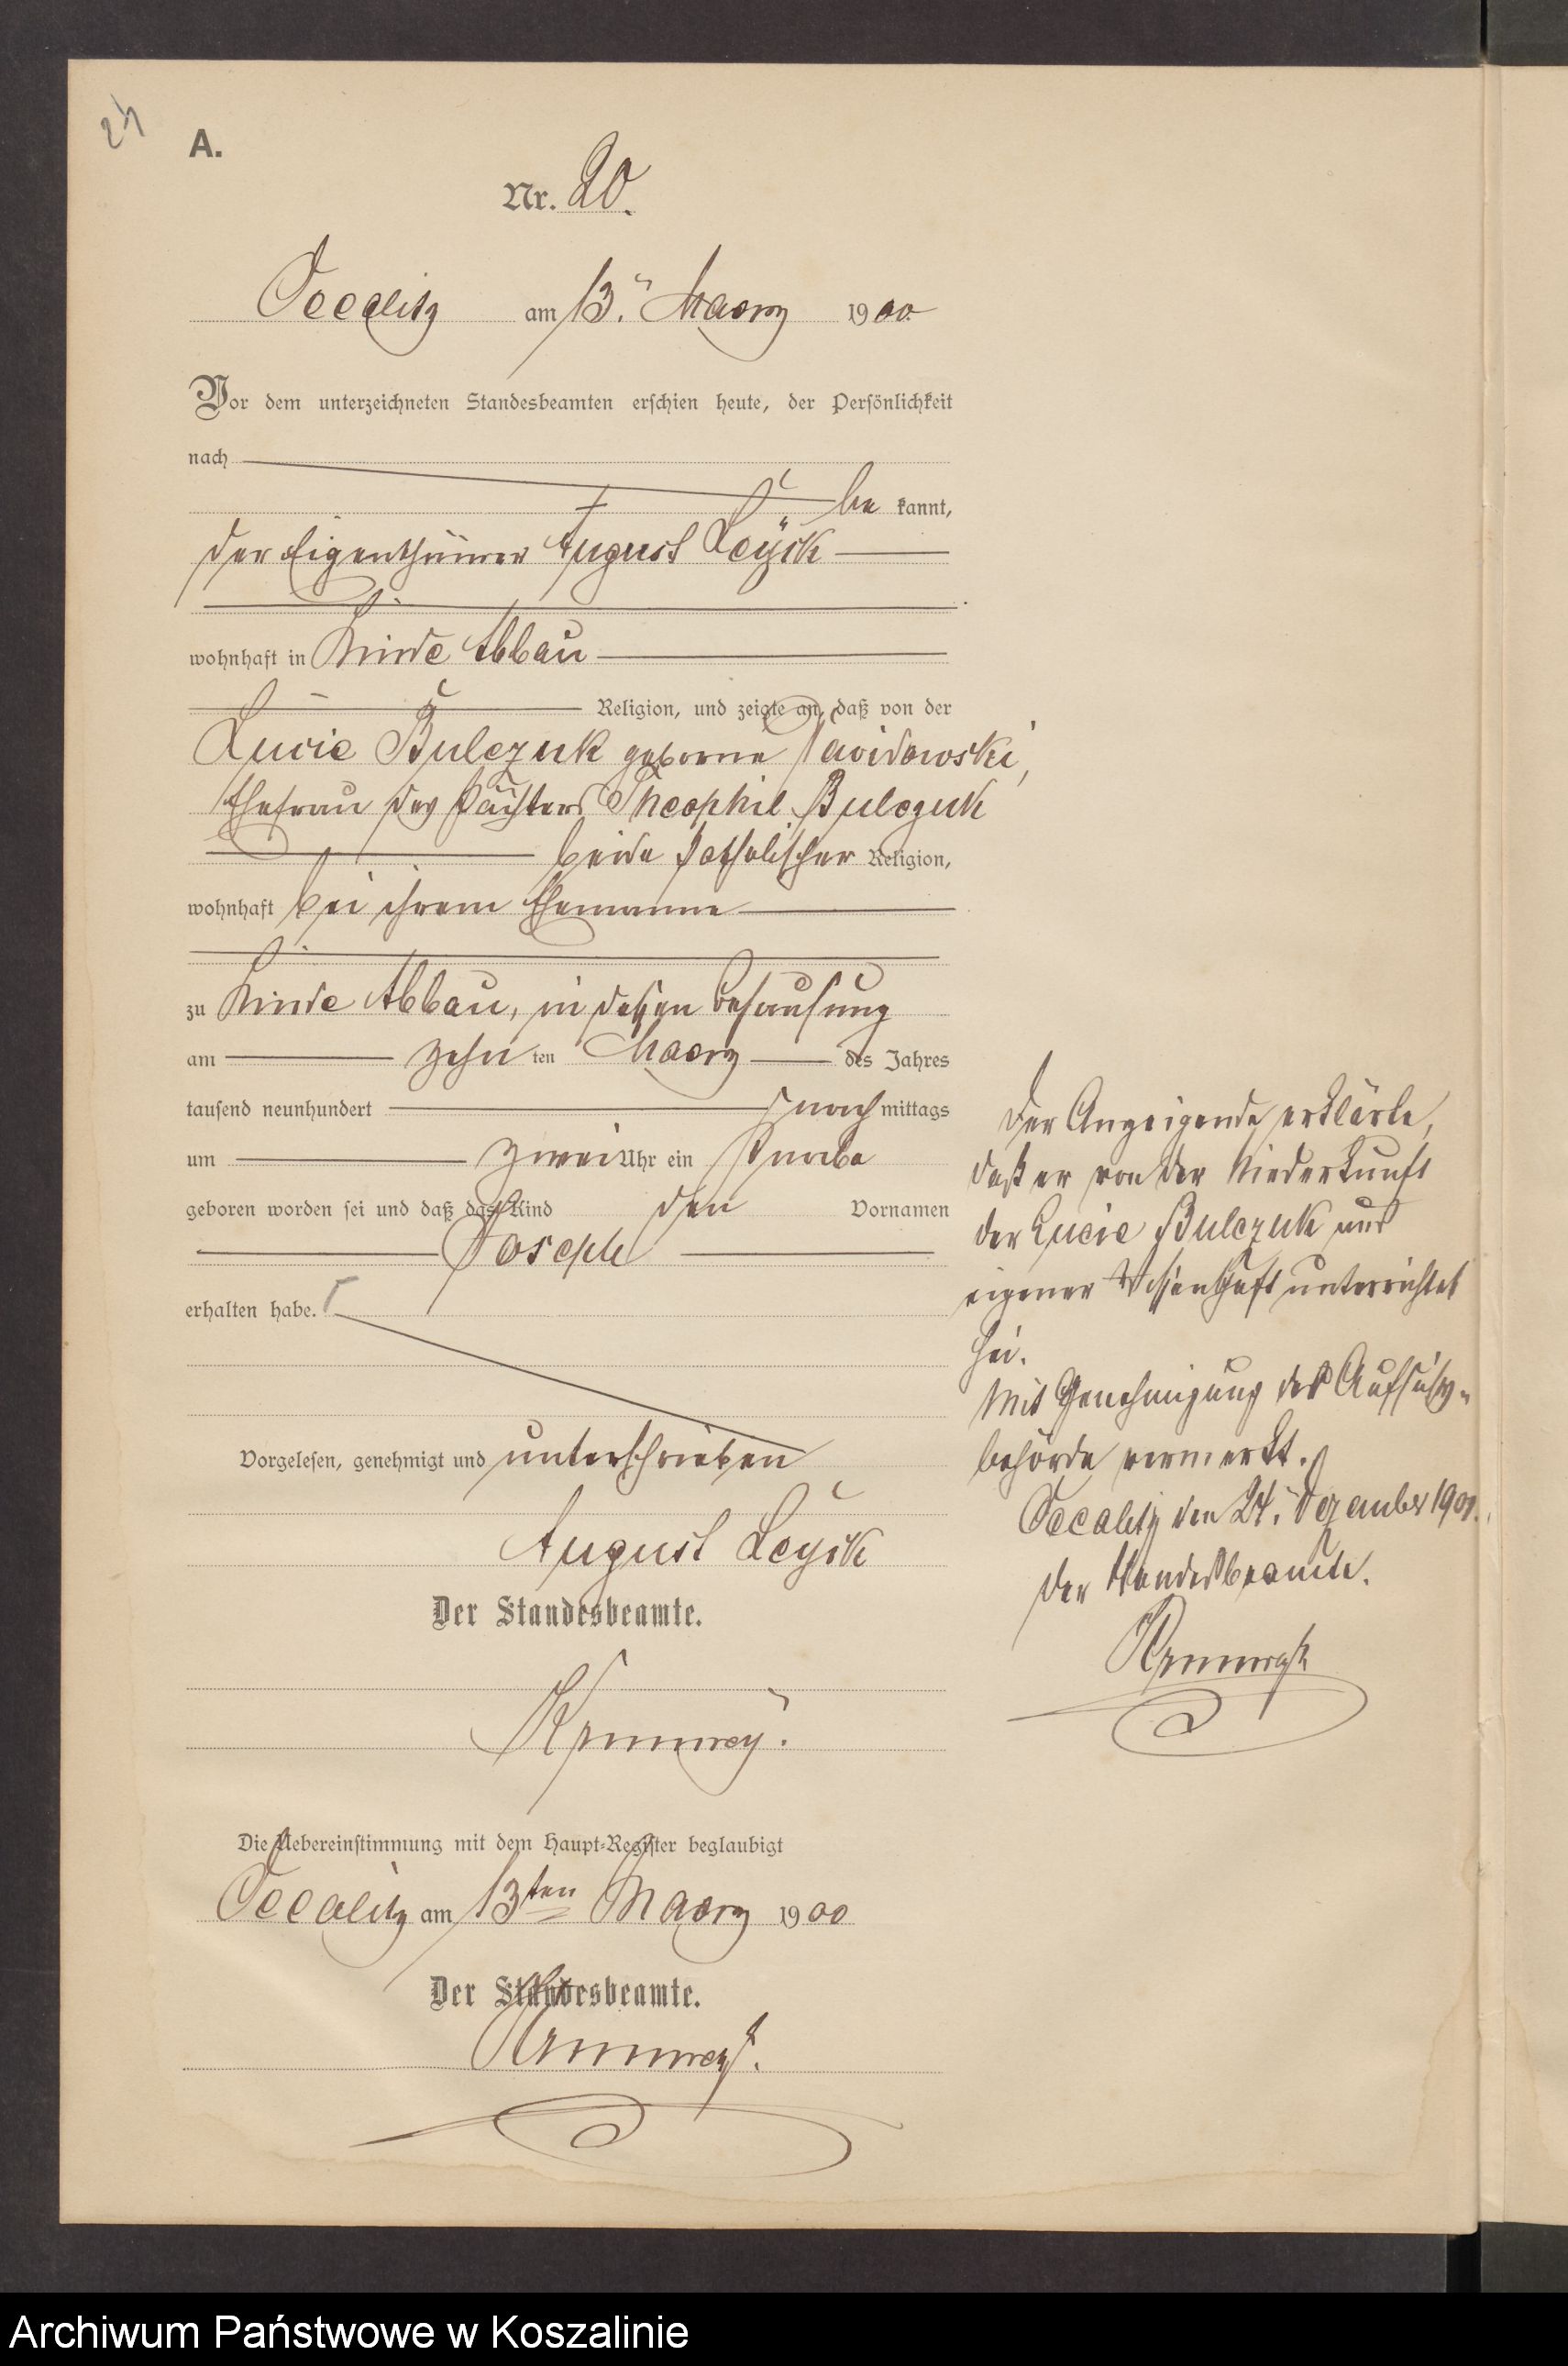 24
A.
Nr. 20.
Oecalitz am 13. Maerz 1900
Vor dem unterzeichneten Standesbeamten erschien heute, der Persönlichkeit
nach
be kannt,
der Eigenthümer August Leÿik
wohnhaft in Linde Abbau
Religion, und zeigte an, daß von der
Lucie Bulczuk geborne Dawidowski,
Ehefrau des Pächters Theophil Bulczuk
beide katholischer Religion,
wohnhaft bei ihrem Ehemanne
zu Linde Abbau, in dessen Behausung
am zehn ten Maerz des Jahres
tausend neunhundert nach mittags
um zwei Uhr ein Knabe
geboren worden sei und daß das Kind den Vornamen
Joseph
erhalten habe.
Vorgelesen, genehmigt und unterschrieben
August Leyik
Der Standesbeamte.
Die Uebereinstimmung mit dem Haupt-Register beglaubigt
Oecalitz am 13ten Maerz 1900
Der Standesbeamte.
Der Anzeigende erklärte,
daß er von der Niederkunft
der Lucie Bulczuk aus
eigener Wissenschaft unterrichtet
sei.
Mit Genehmigung der Aufsichts-
behörde vermerkt.
Oecalitz den 24. Dezember 1900.
Der Standesbeamte.
Archiwum Państwowe w Koszalinie